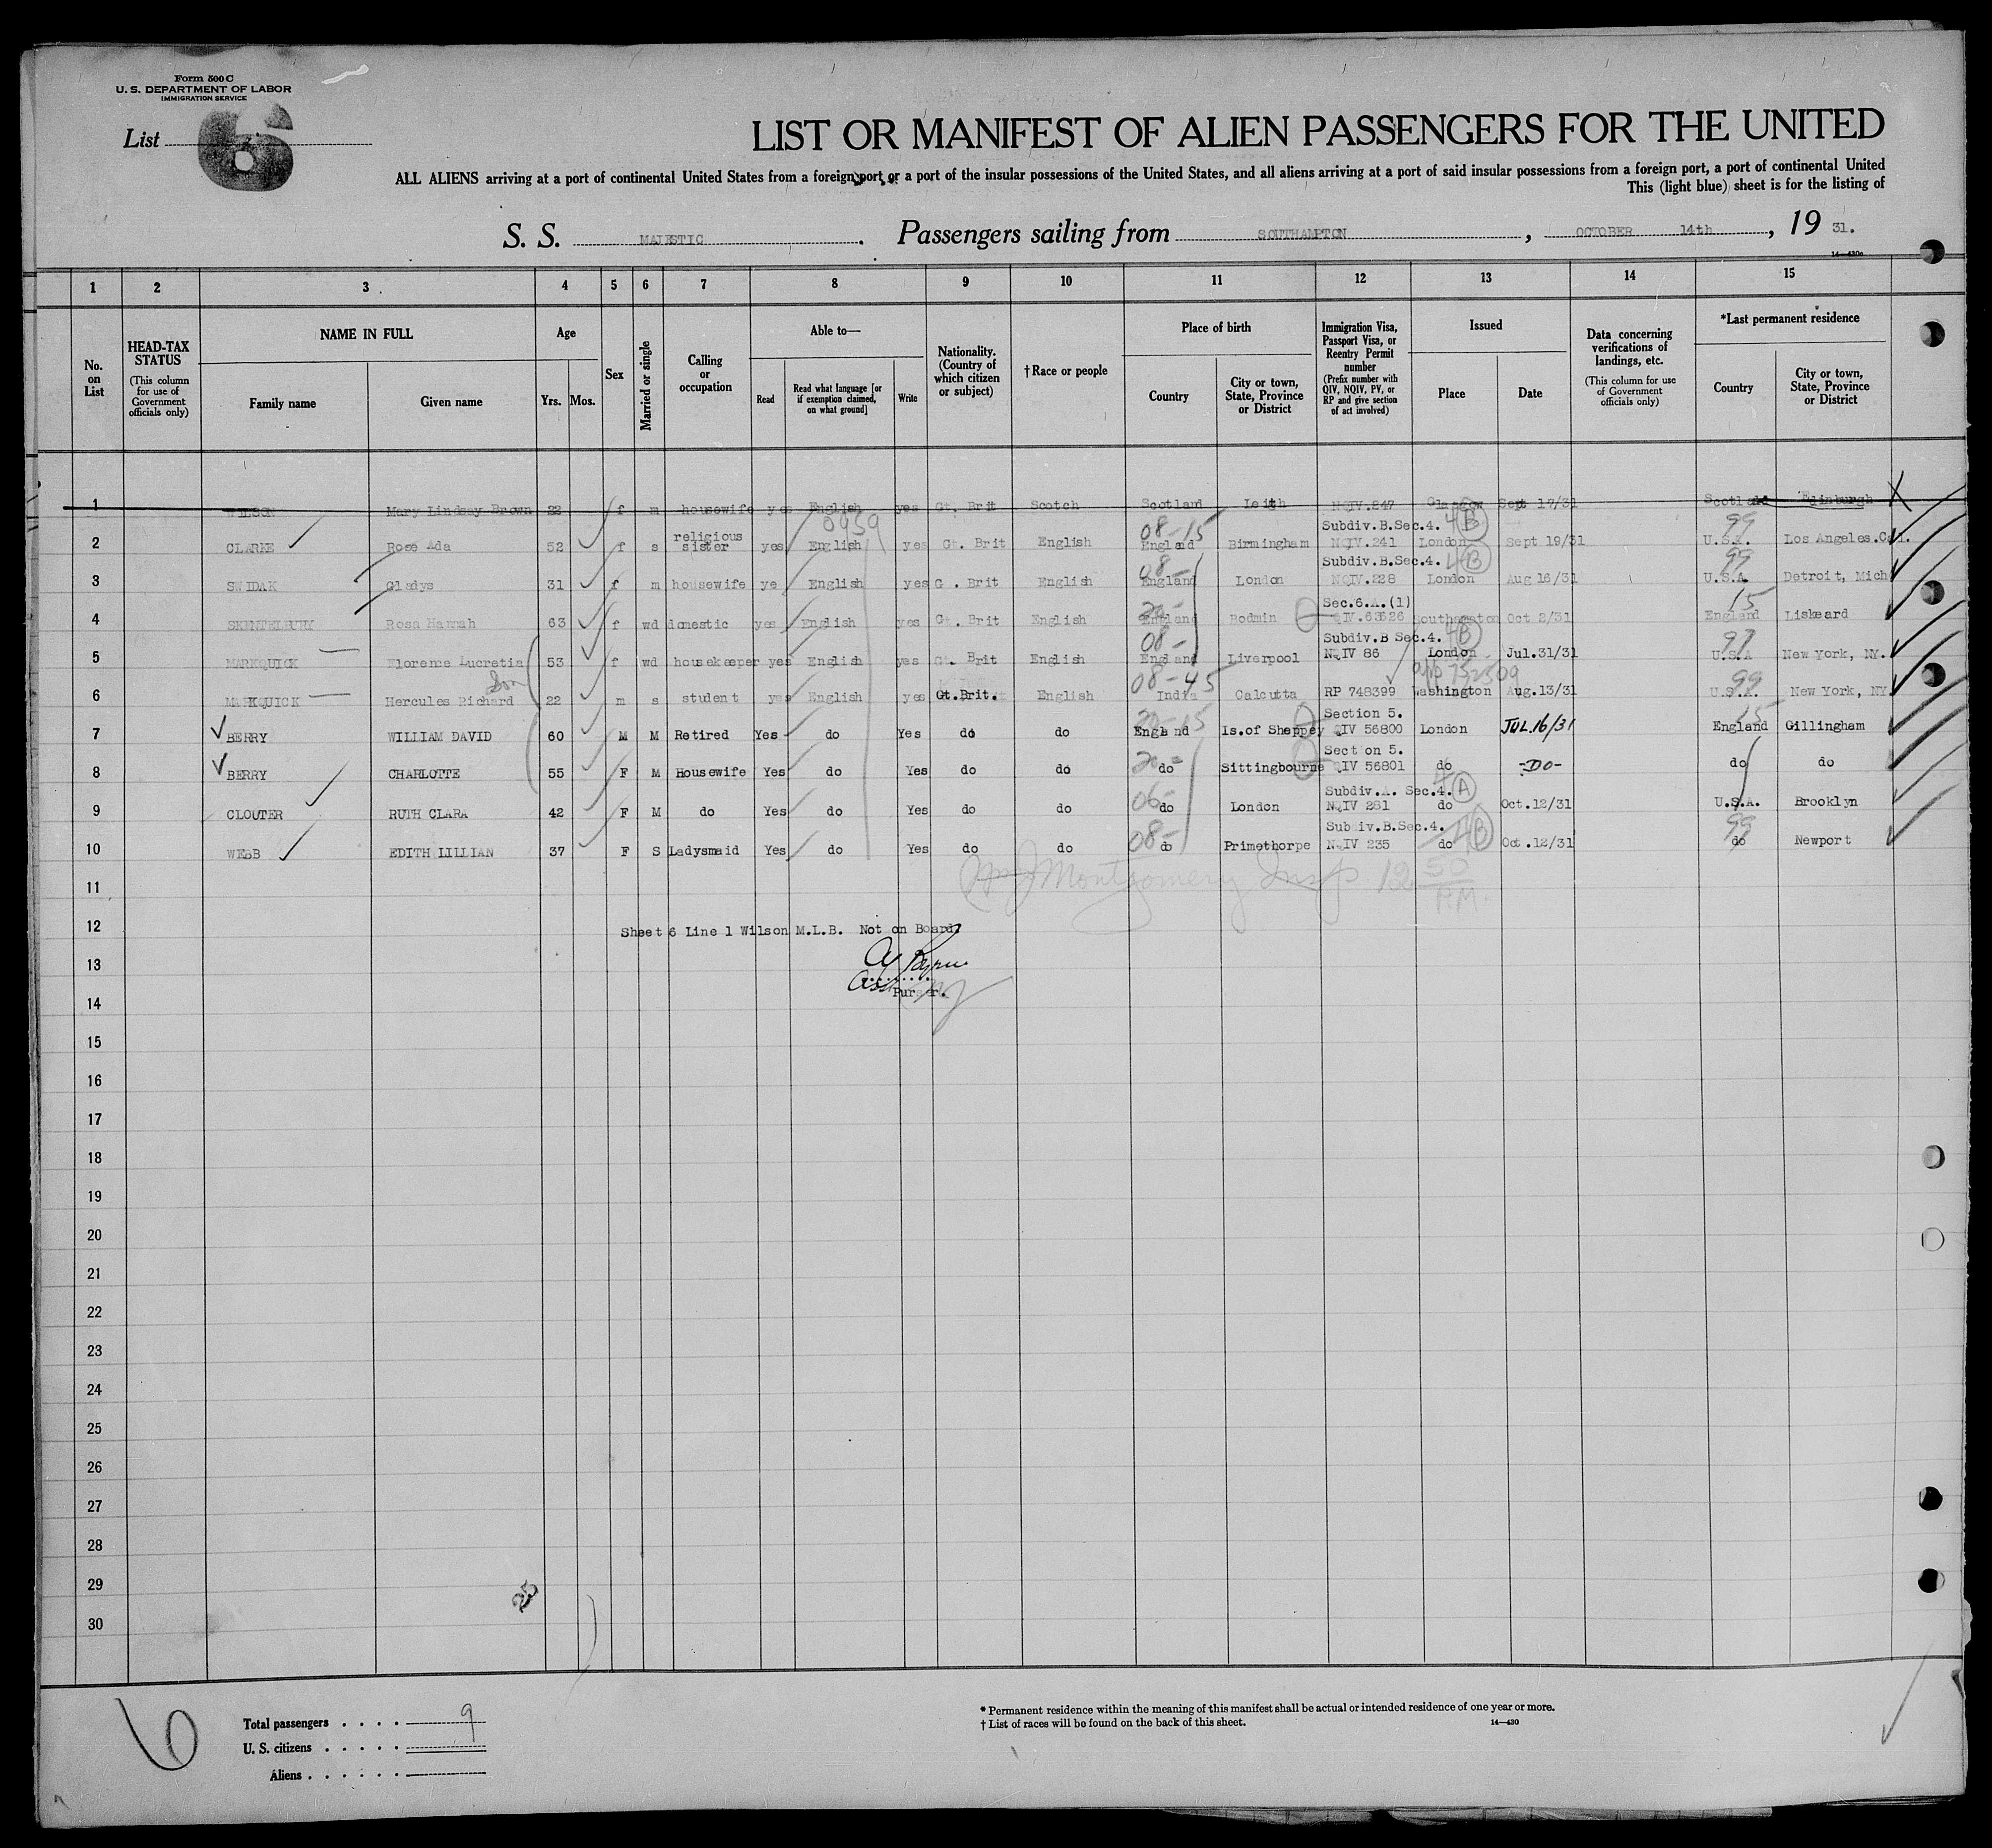 Form 500 C
U. S. DEPARTMENT OF LABOR
IMMIGRATION SERVICE
List 6
LIST OR MANIFEST OF ALIEN PASSENGERS FOR THE UNITED
ALL ALIENS arriving at a port of continental United States from a foreign port or a port of the insular possessions of the United States, and all aliens arriving at a port of said insular possessions from a foreign port, a port of continental United
This (light blue) sheet is for the listing of
S. S. MAJESTIC. Passengers sailing from SOUTHAMPTON, OCTOBER 14th, 19 31.
14—430c
1 2 3 4 5 6 7 8 9 10 11 12 13 14 15
No. on List
HEAD-TAX STATUS (This column for use of Government officials only)
NAME IN FULL Family name Given name
Age Yrs. Mos.
Sex
Married or single
Calling or occupation
Able to— Read Read what language [or if exemption claimed, on what ground] Write
Nationality. (Country of which citizen or subject)
†Race or people
Place of birth Country City or town, State, Province or District
Immigration Visa, Passport Visa, or Reentry Permit number (Prefix number with QIV, NQIV, PV, or RP and give section of act involved)
Issued Place Date
Data concerning verifications of landings, etc. (This column for use of Government officials only)
*Last permanent residence Country City or town, State, Province or District
1 WILSON Mary Lindsay Brown 22 f m housewife yes English yes Gt. Brit Scotch Scotland Leith NQIV.247 Glasgow Sept 17/31 Scotland Edinburgh X
religious 0959 08-15 Subdiv.B.Sec.4. 4B 99
2 CLARKE Rose Ada 52 f s sister yes English yes Gt. Brit English England Birmingham NQIV.241 London Sept 19/31 U.S.A. Los Angeles.Cal.
08- Subdiv.B.Sec.4. 4B 99
3 SWIDAK Gladys 31 f m housewife ye English yes G . Brit English England London NQIV.228 London Aug 16/31 U.S.A. Detroit, Mich
20- Sec.6.A.(1) 15
4 SKENTELBURY Rosa Hannah 63 f wd domestic yes English yes Gt. Brit English England Bodmin QIV.63626 Southampton Oct 2/31 England Liskeard
08- Subdiv.B Sec.4. 4B 97
5 MARKQUICK Florence Lucretia 53 f wd housekeeper yes English yes Gt. Brit English England Liverpool NQIV 86 London Jul.31/31 U.S.A New York, NY.
Son 08-45 99
6 MARKQUICK Hercules Richard 22 m s student yes English yes Gt.Brit. English India Calcutta RP 748399 Washington Aug.13/31 U.S.A. New York, NY
20-15 Section 5. 15
7 BERRY WILLIAM DAVID 60 M M Retired Yes do Yes do do England Is.of Sheppey QIV 56800 London JUL.16/31 England Gillingham
20- Section 5.
8 BERRY CHARLOTTE 55 F M Housewife Yes do Yes do do do Sittingbourne QIV 56801 do -DO- do do
06- Subdiv.A. Sec.4. 4A
9 CLOUTER RUTH CLARA 42 F M do Yes do Yes do do do London NQIV 281 do Oct.12/31 U.S.A. Brooklyn
08- Subdiv.B.Sec.4. 4B 99
10 WEBB EDITH LILLIAN 37 F S Ladysmaid Yes do Yes do do do Primethorpe NQIV 235 do Oct.12/31 do Newport
11 Montgomery Insp. 12 50 P.M.
12 Sheet 6 Line 1 Wilson M.L.B. Not on Board
13
14 Purser.
15
16
17
18
19
20
21
22
23
24
25
26
27
28
29
30
6
Total passengers . . . . 9
U. S. citizens . . . . .
Aliens . . . . . .
* Permanent residence within the meaning of this manifest shall be actual or intended residence of one year or more.
† List of races will be found on the back of this sheet.
14—430